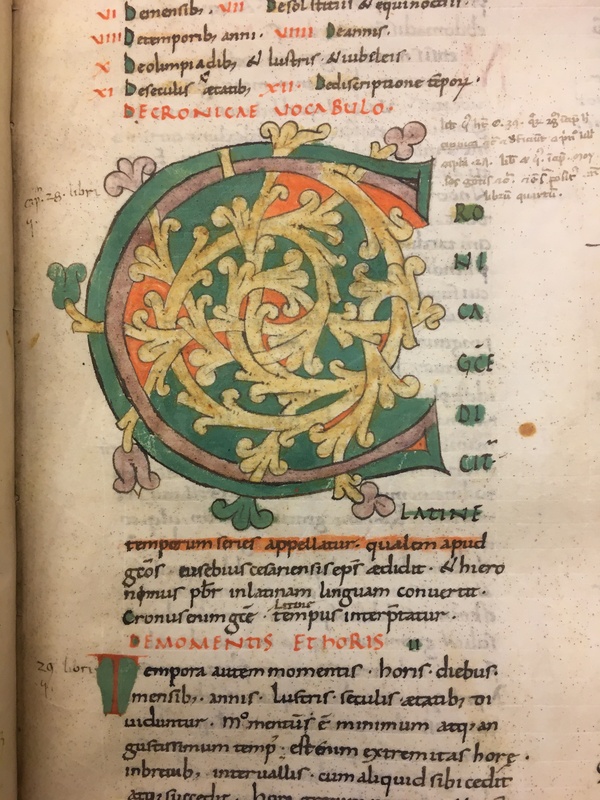 VI Demensib; VII Desolstitiis & equinoctiis
VIII Detemporib; anni. VIIII Deannis.
X Deolimpiadib; & lustris & iubeleis
XI Deseculis & ætatib; XII. Dediscriptione tēpoꝝ.
DECRONICAE VOCABULO.
C
RO
NI
CA
GCE
DI
CIT̄
LATINE
temporum series appellatur. qualem apud
gcōs eusebius cesariensis ep̄s ædidit. & hiero
nimus pb̄r inlatinam linguam convertit.
Latine
Cronus enim gce tempus interp̄tatur.
DEMOMENTIS ETHORIS II
29 libri
Tempora autem momentis. horis. diebus.
mensib; annis. lustris. seculis ætatib; di
uiduntur. Momentū ē minimum atq; an
gustissimum temp᾽. est enim extremitas horę.
inbreuib; interuallis. cum aliquid sibi cedit
atq; succedit. hora